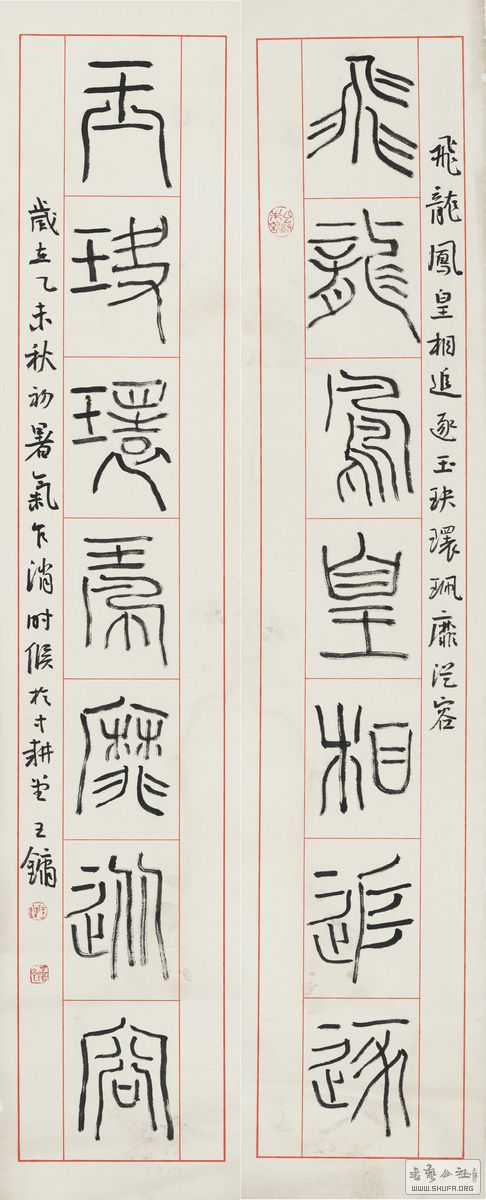 飛龍鳳皇相追逐玉玦環珮靡從容
飛龍鳳皇相追逐
玉玦環珮靡從容
歲在乙未秋初暑氣乍消时候於寸耕堂王鏞
書藝公社
WWW.SHUFA.ORG